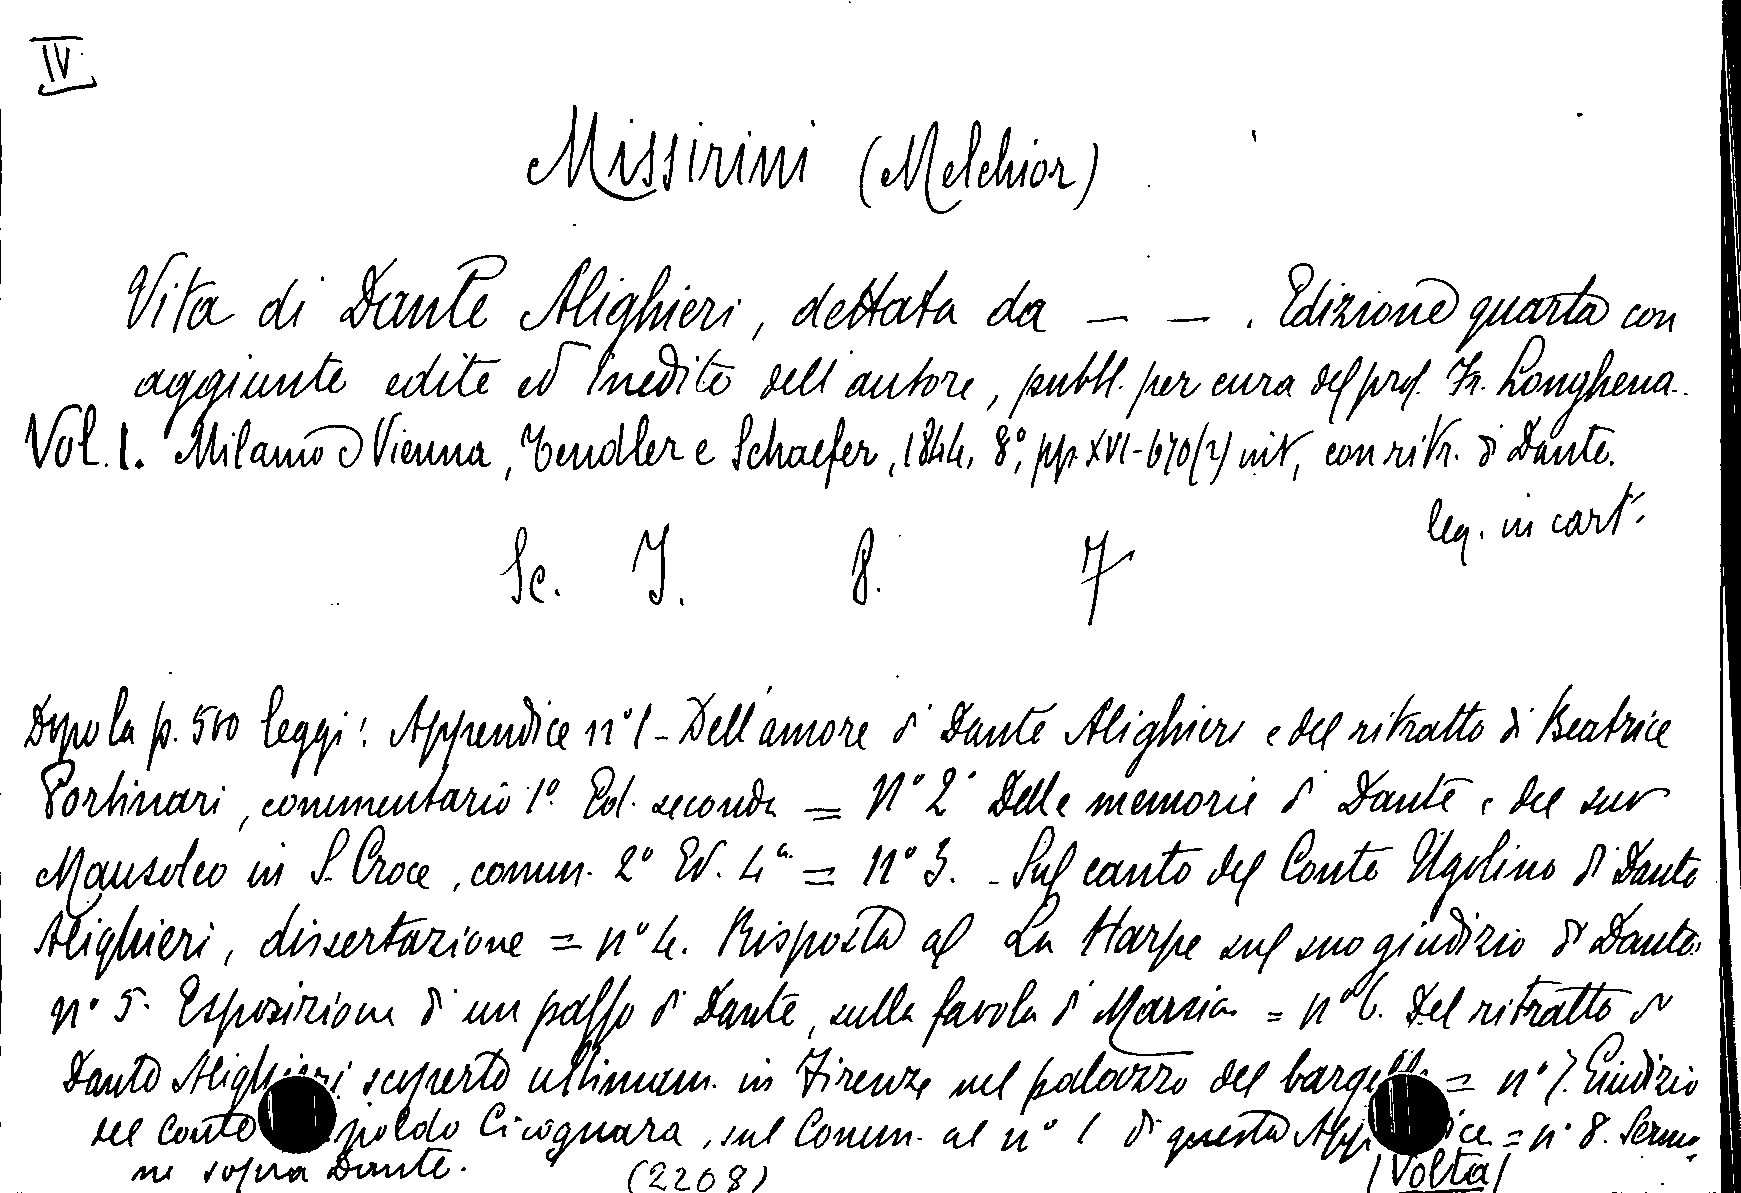 IV
Missirini (Melchior)
Vita di Dante Alighieri, dettata da — — . Edizione quarta con
aggiunte edite ed inedite dell'autore, pubbl. per cura del prof. Fr. Longhena.
Vol. I. Milano e Vienna, Tendler e Schaefer, 1844, 8°, pp. XVI-670(2) con ritr. di Dante.
leg. in cart.
Sc. I. 8. 7
Dopo la p. 500 leggi: Appendice n° 1 - Dell'amore di Dante Alighieri e del ritratto di Beatrice
Portinari, commentario 1°. Ed. seconda = N° 2° Delle memorie di Dante e del suo
Mausoleo in S. Croce, comm. 2° Ed. 4ª = n° 3. - Sul canto del Conte Ugolino di Dante
Alighieri, dissertazione = n° 4. Risposta al La Harpe sul suo giudizio di Dante.
n° 5. Esposizione di un passo di Dante, sulla favola di Marsia = n° 6. Del ritratto di
Dante Alighieri scoperto ultimam. in Firenze nel palazzo del bargello = n° 7. Giudizio
del Conte poldo Cicognara, sul Comm. al n° 1 di questa App ice = n° 8. Sermo-
ne sopra Dante.
(2208)
/Volta/